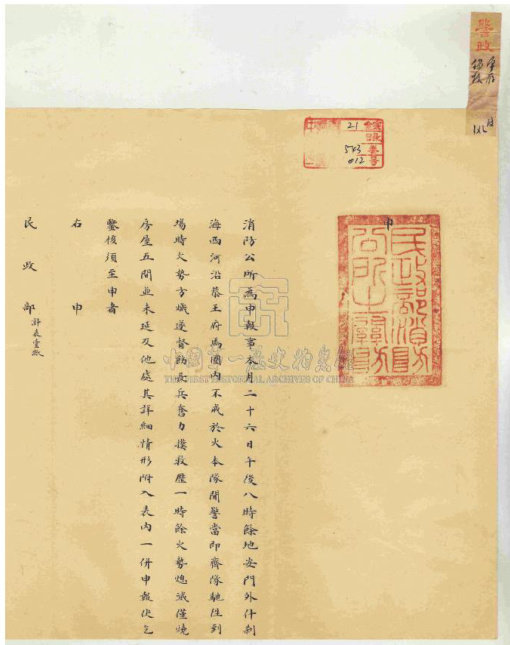 警政
21
503
012
申
民政部消防公所之關防
消防公所為申報事本月二十六日午後八時餘地安門外什刹
海西河沿恭王府馬圈內不戒於火本隊聞警當即齊隊馳往到
場時火勢方熾遂督飭長兵奮力撲救歷一時餘火勢熄滅僅燒
房屋五間並未延及他處其詳細情形附入表內一併申報伏乞
鑒核須至申者
右申
民政部
中國第一歷史檔案館
THE FIRST HISTORICAL ARCHIVES OF CHINA